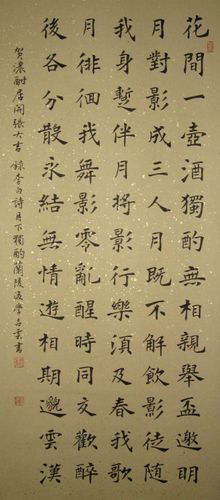 花間一壺酒獨酌無相親舉盃邀明
月對影成三人月既不解飲影徒隨
我身蹔伴月將影行樂須及春我歌
月徘徊我舞影零亂醒時同交歡醉
後各分散永結無情遊相期邈雲漢
賀濃酎居開張大吉錄李白詩月下獨酌蘭陵後學雲書